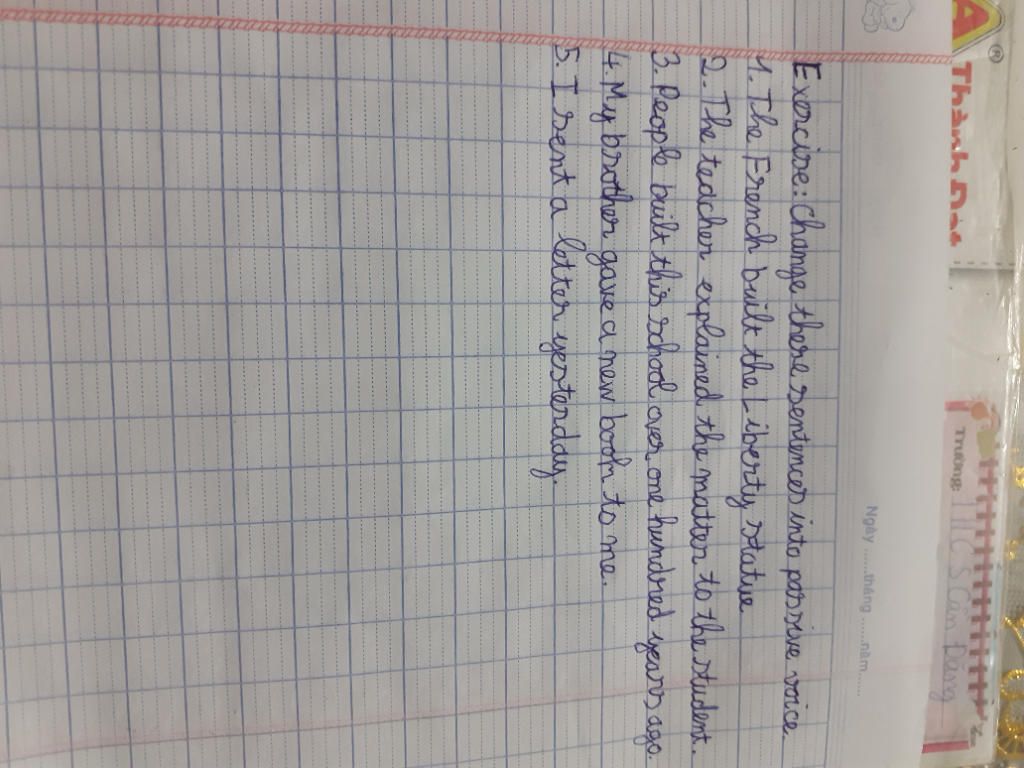 Exercise: Change these sentences into passive voice
1. The French built the Liberty statue
2. The teacher explained the matter to the student.
3. People built this school over one hundred years ago.
4. My brother gave a new book to me.
5. I sent a letter yesterday.
Ngày ......tháng .....năm......
A
®
Thành Đạt
Trường: THCS Cần Đăng